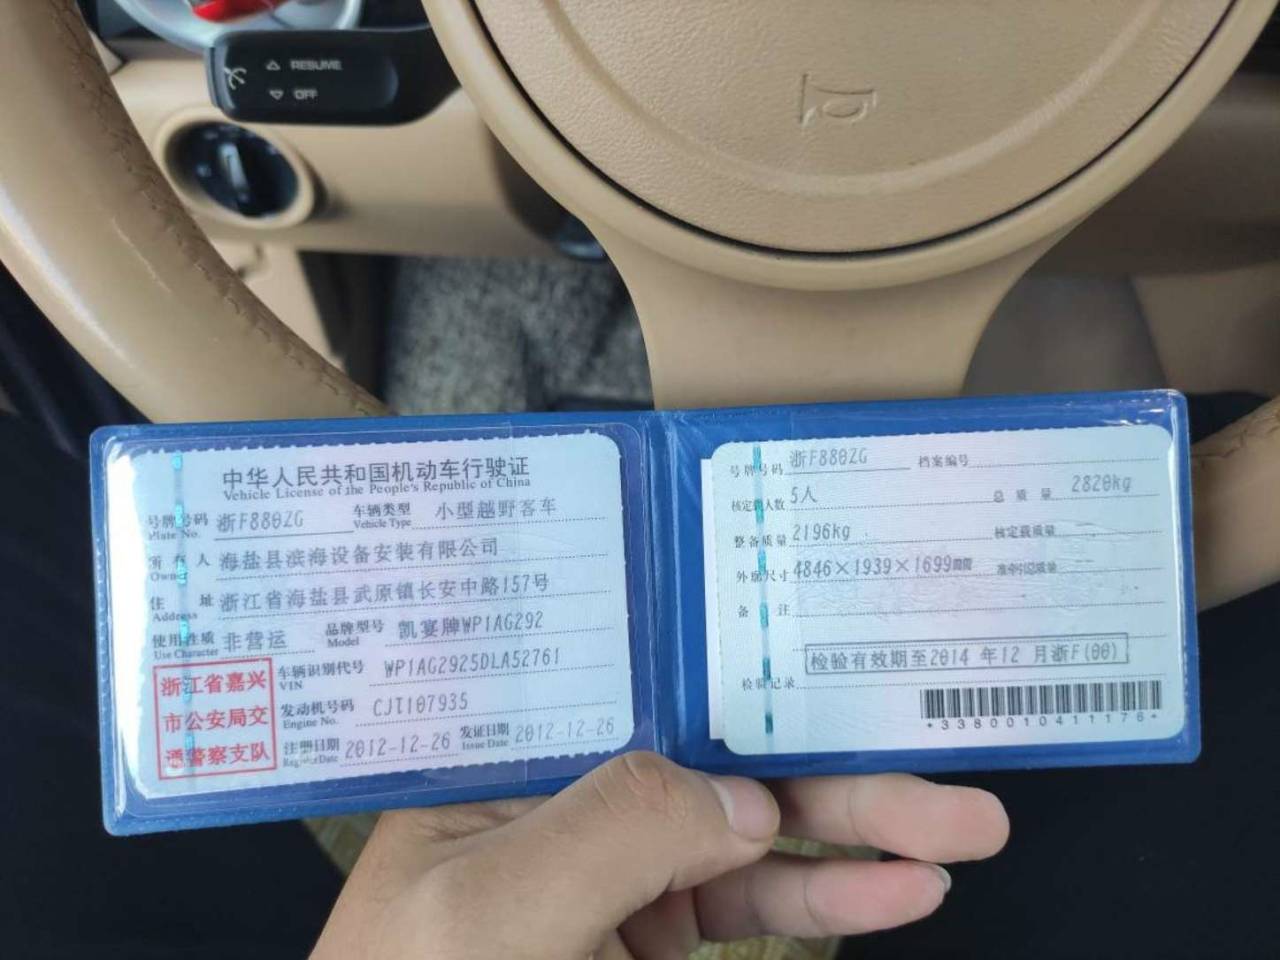 RESUME
OFF
中华人民共和国机动车行驶证
Vehicle License of the People's Republic of China
号牌号码 浙F880ZG 车辆类型 小型越野客车
Plate No. Vehicle Type
所有人 海盐县滨海设备安装有限公司
Owner
住址 浙江省海盐县武原镇长安中路157号
Address
使用性质 非营运 品牌型号 凯宴牌WP1AG292
Use Character Model
浙江省嘉兴
市公安局交
通警察支队
车辆识别代号 WP1AG2925DLA52761
VIN
发动机号码 CJT107935
Engine No.
注册日期 2012-12-26 发证日期 2012-12-26
Register Date Issue Date
号牌号码 浙F880ZG 档案编号
核定载人数 5人 总质量 2820kg
整备质量 2196kg 核定载质量 --
外廓尺寸 4846×1939×1699mm 准牵引总质量 --
备注
检验有效期至2014 年12 月浙F(00)
检验记录
*3380010411176*